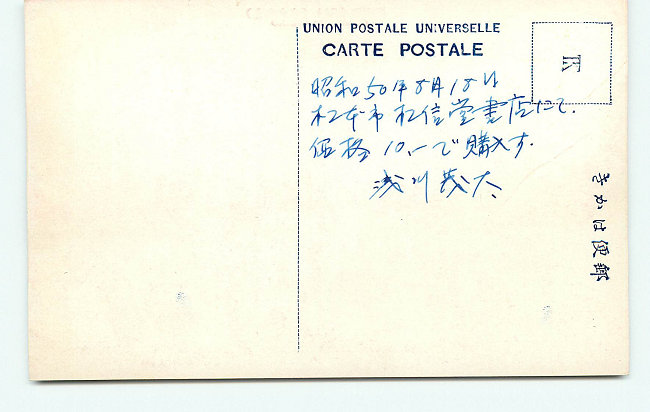 UNION POSTALE UNIVERSELLE
CARTE POSTALE
昭和50年8月18日
松本市松信堂書店にて.
価格 10.-で購入す.
浅川茂太
きかは便郵